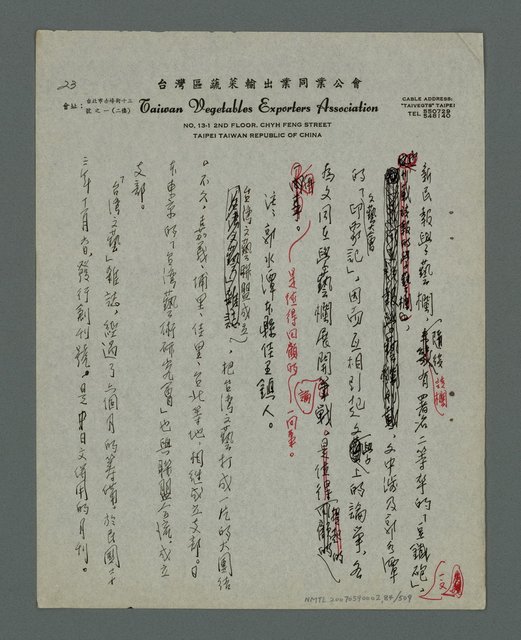 23
台灣區蔬菜輸出業同業公會
會址：台北市赤峰街十三號之一(二樓)
Taiwan Vegetables Exporters Association
CABLE ADDRESS:
"TAIVEGTS" TAIPEI
TEL 550729
546140
NO. 13-1 2ND FLOOR, CHYH FENG STREET
TAIPEI TAIWAN REPUBLIC OF CHINA
新民報學藝欄，隨後該欄有署名二等卒的「豆鐵砲」一文
文中涉及郭水潭
的「文藝大會印象記」，因而互相引起文學上的論爭，各
為文同在學藝欄展開論戰。
是值得回顧的一回事。
注：郭水潭台南縣佳里鎮人。
台灣文藝聯盟成立，把台灣文藝打成一片的大團結
。不久，嘉義、埔里、佳里、台北等地，相繼成立支部。日
本東京的「台灣藝術研究會」也與聯盟合流，成立
支部。
「台灣文藝」雜誌，經過了六個月的籌備，於民國二十
三年十一月五日，發行創刊號。是中日文併用的月刊。
NMTL 20070590002 84/509